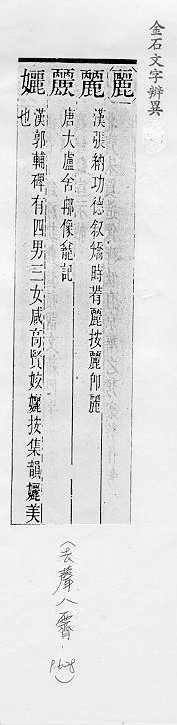 金石文字辨異
麗
麗 漢張納功德叙 矯時 麗按麗卽麗
麗 唐大盧舍那像龕記
孋 漢郭輔碑有四男三女咸高賢姣孋按集韻孋美
也
(去聲八霽 P.628)